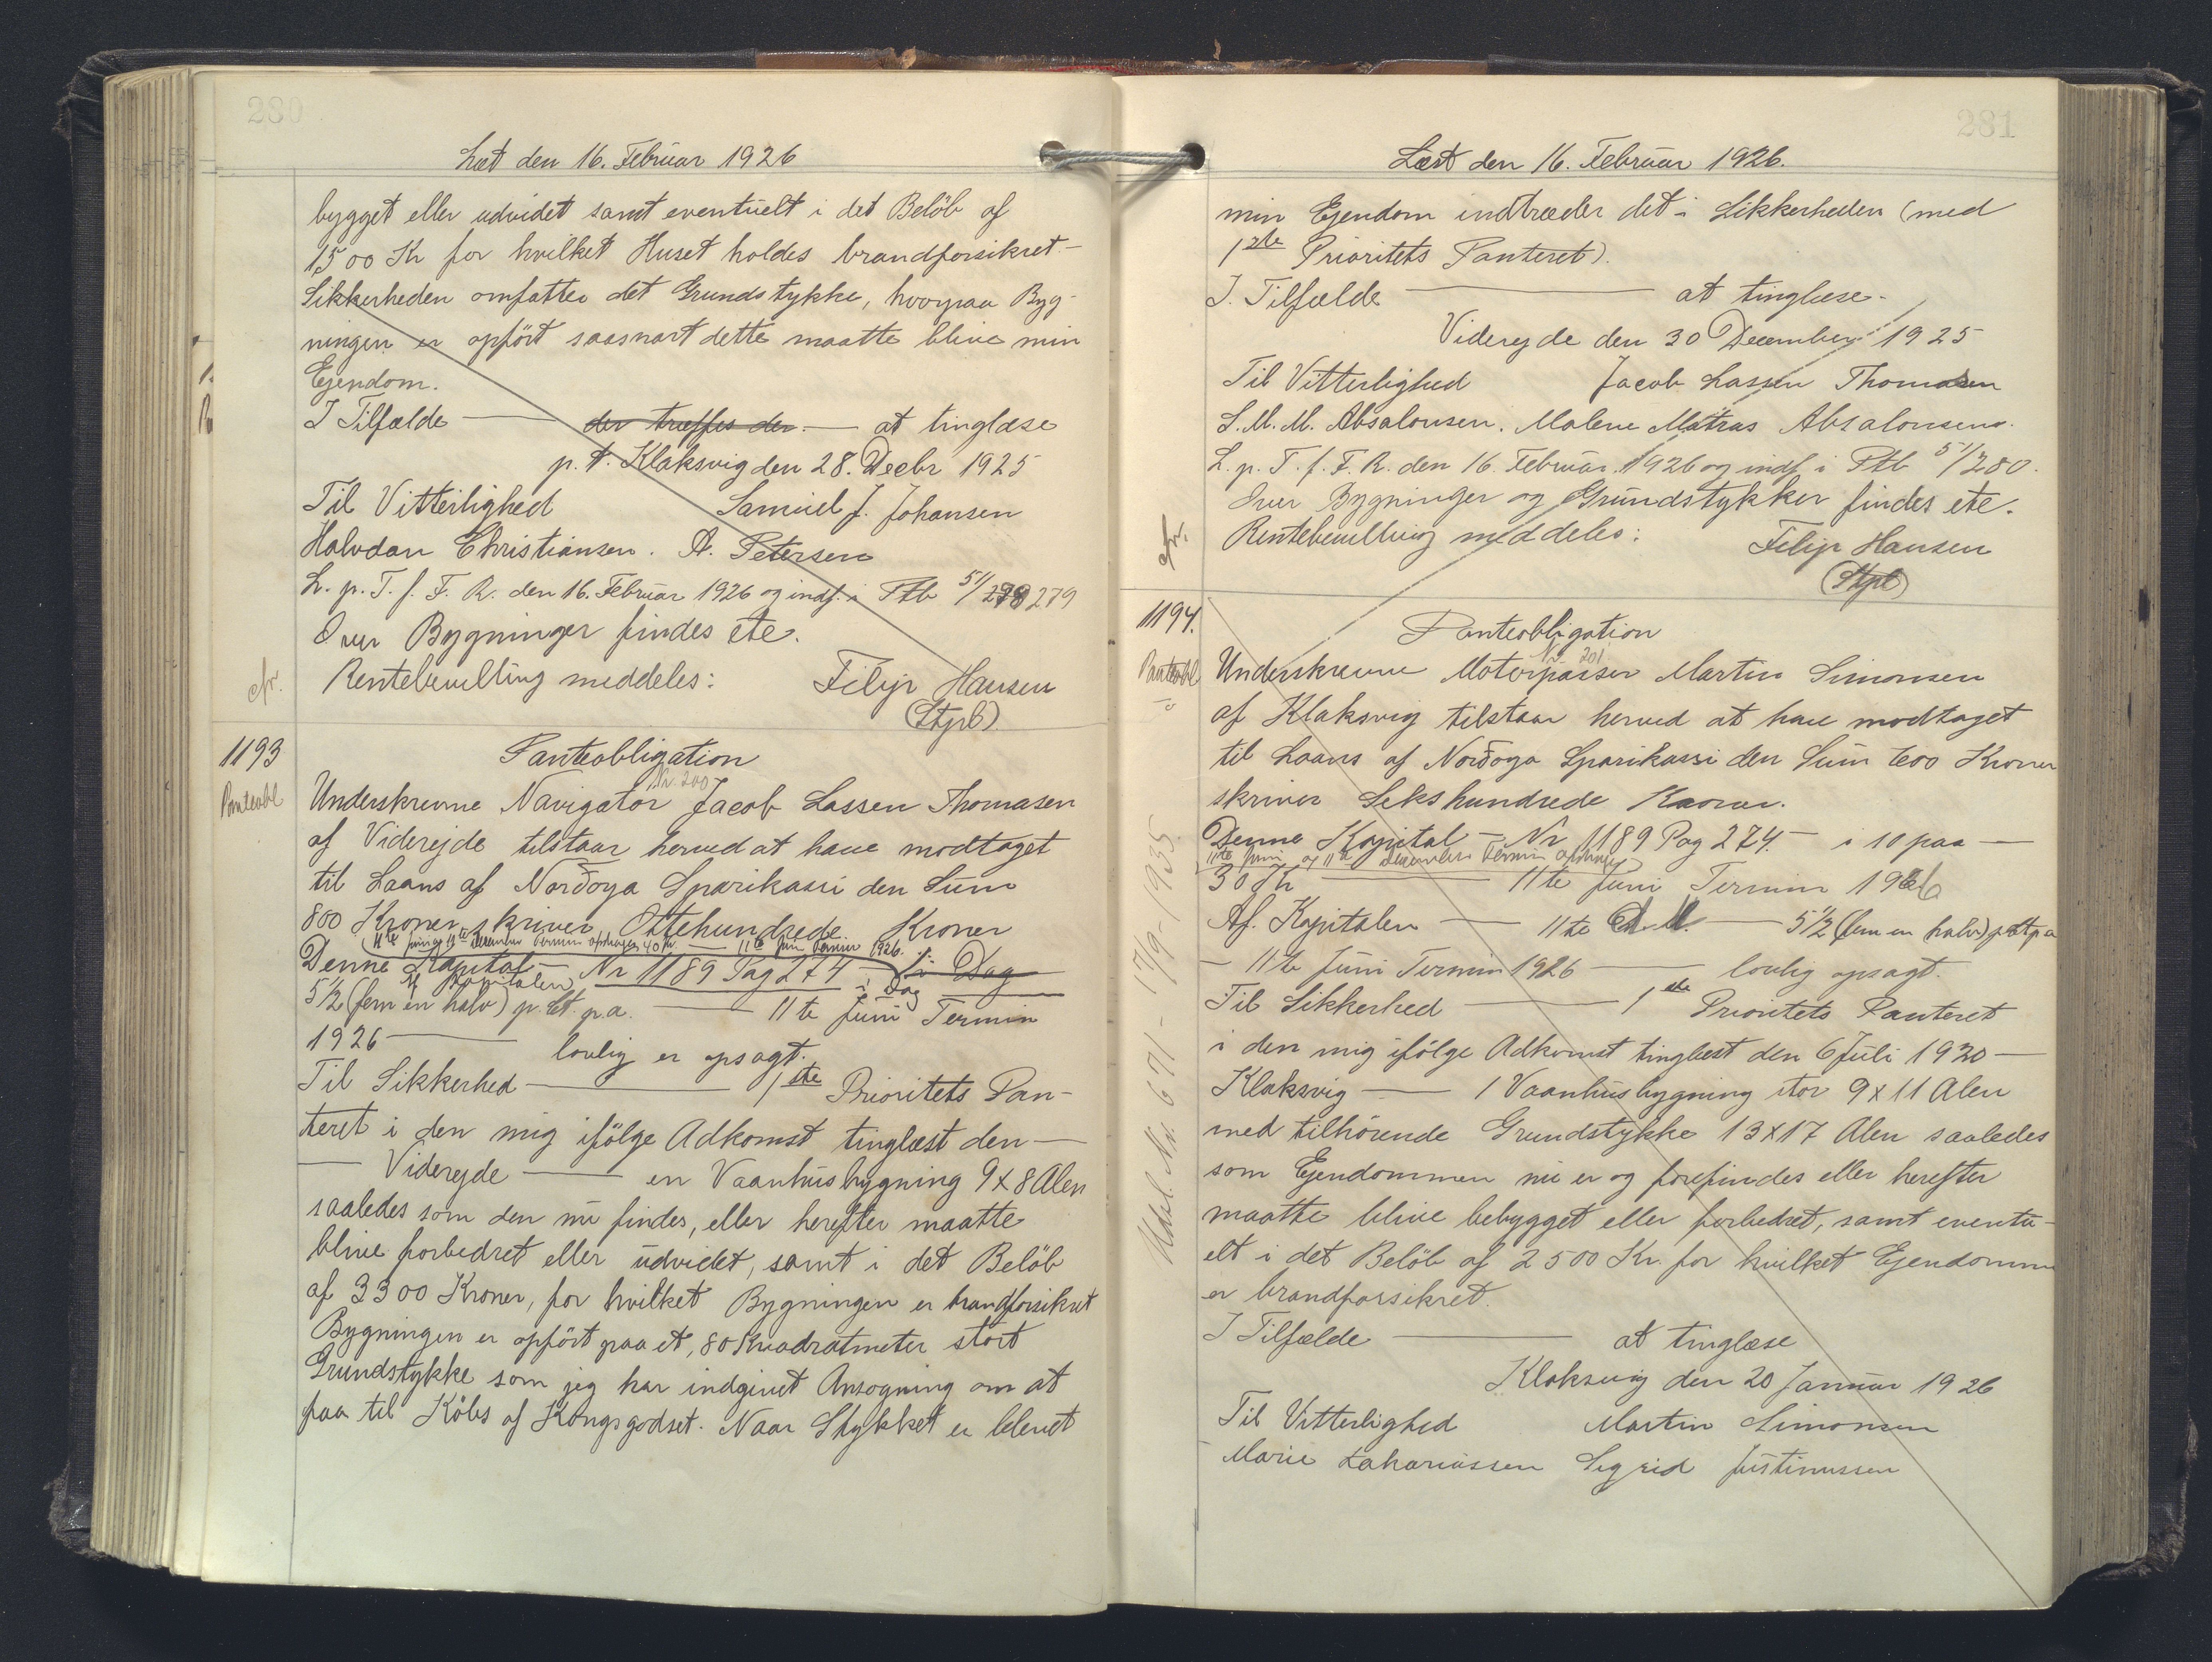 280
Læst den 16. Februar 1926
bygget eller udvidet samt eventuelt i det Beløb af
1500 Kr for hvilket Huset holdes brandforsikret-
Sikkerheden omfatter det Grundstykke, hvorpaa Byg-
ningen er opført saasnart dette maatte blive min
Ejendom.
I Tilfælde — der træffes der. — at tinglæse
p. t. Klaksvig den 28. Decbr 1925
Til Vitterlighed Samuel J. Johansen
Halvdan Christiansen. A. Petersen
L. p. T. f. F. R. den 16. Februar 1926 og indf. i Ptb 51/279
Over Bygninger findes ete.
cfr. Rentebevilling meddeles: Filip Hansen
(Stpl)
1193 Panteobligation
Nr. 200
Panteobl Underskrevne Navigatør Jacob Lassen Thomasen
af Viderejde tilstaar herved at have modtaget
til Laans af Norðoya Sparikassi den Sum
800 Kroner, skriver Ottehundrede Kroner
11te Juni og 11te December Termin afdrages 40 Kr. — 11te Juni Termin 1926.
Denne Kapital — Nr 1189 Pag 274 — i Dag
Af Kapitalen i Dag
5½ (fem en halv) p. Ct. p.a. — 11te Juni Termin
1926 — lovlig er opsagt.
Til Sikkerhed — 1ste Prioritets Pan-
teret i den mig ifølge Adkomst tinglæst den —
— Viderejde — en Vaanhusbygning 9 x 8 Alen
saaledes som den nu findes, eller herefter maatte
blive forbedret eller udvidet, samt i det Beløb
af 3300 Kroner, for hvilket Bygningen er brandforsikret
Bygningen er opført paa et, 80 Kvadratmeter stort
Grundstykke som jeg har indgivet Ansøgning om at
faa til Købs af Kongsgodset. Naar Stykket er blevet
281
Læst den 16. Februar 1926.
min Ejendom indtræder det i Sikkerheden (med
1ste Prioritets Panteret).
I. Tilfælde — at tinglæse.
Viderejde den 30 December 1925
Til Vitterlighed Jacob Lassen Thomasen
S. M. M. Absalonsen. Malene Matras Absalonsen.
L. p. T. f. F. R. den 16. Februar 1926 og indf. i Ptb 51/280.
Over Bygninger og Grundstykker findes ete.
cfr. Rentebevilling meddeles: Filip Hansen
(Stpl)
1194. Panteobligation
Nr. 201
Panteobl Underskrevne Motorpasser Martin Simonsen
af Klaksvig tilstaar herved at have modtaget
til Laans af Norðoya Sparikassi den Sum 600 Kroner
skriver Sekshundrede Kroner.
Denne Kapital — Nr 1189 Pag 274 — i 10 paa —
11te Juni og 11te December Termin afdrages
30 Kr — 11te Juni Termin 1926
Af. Kapitalen — 11te — 5½ (fem en halv) pCt pa
— 11te Juni Termin 1926 — lovlig opsagt.
Til Sikkerhed — 1ste Prioritets Panteret
i den mig ifølge Adkomst tinglæst den 6 Juli 1920 —
Klaksvig — 1 Vaanhusbygning stor 9 x 11 Alen
med tilhørende Grundstykke 13 x 17 Alen saaledes
som Ejendommen nu er og forefindes eller herefter
maatte blive bebygget eller forbedret, samt eventu-
elt i det Beløb af 2500 Kr. for hvilket Ejendommen
er brandforsikret.
I Tilfælde — at tinglæse
Klaksvig den 20 Januar 1926
Til Vitterlighed Martin Simonsen
Marie Zakariassen Sigrid Justinussen
Udsl. Nr. 671 - 17/9 - 1935